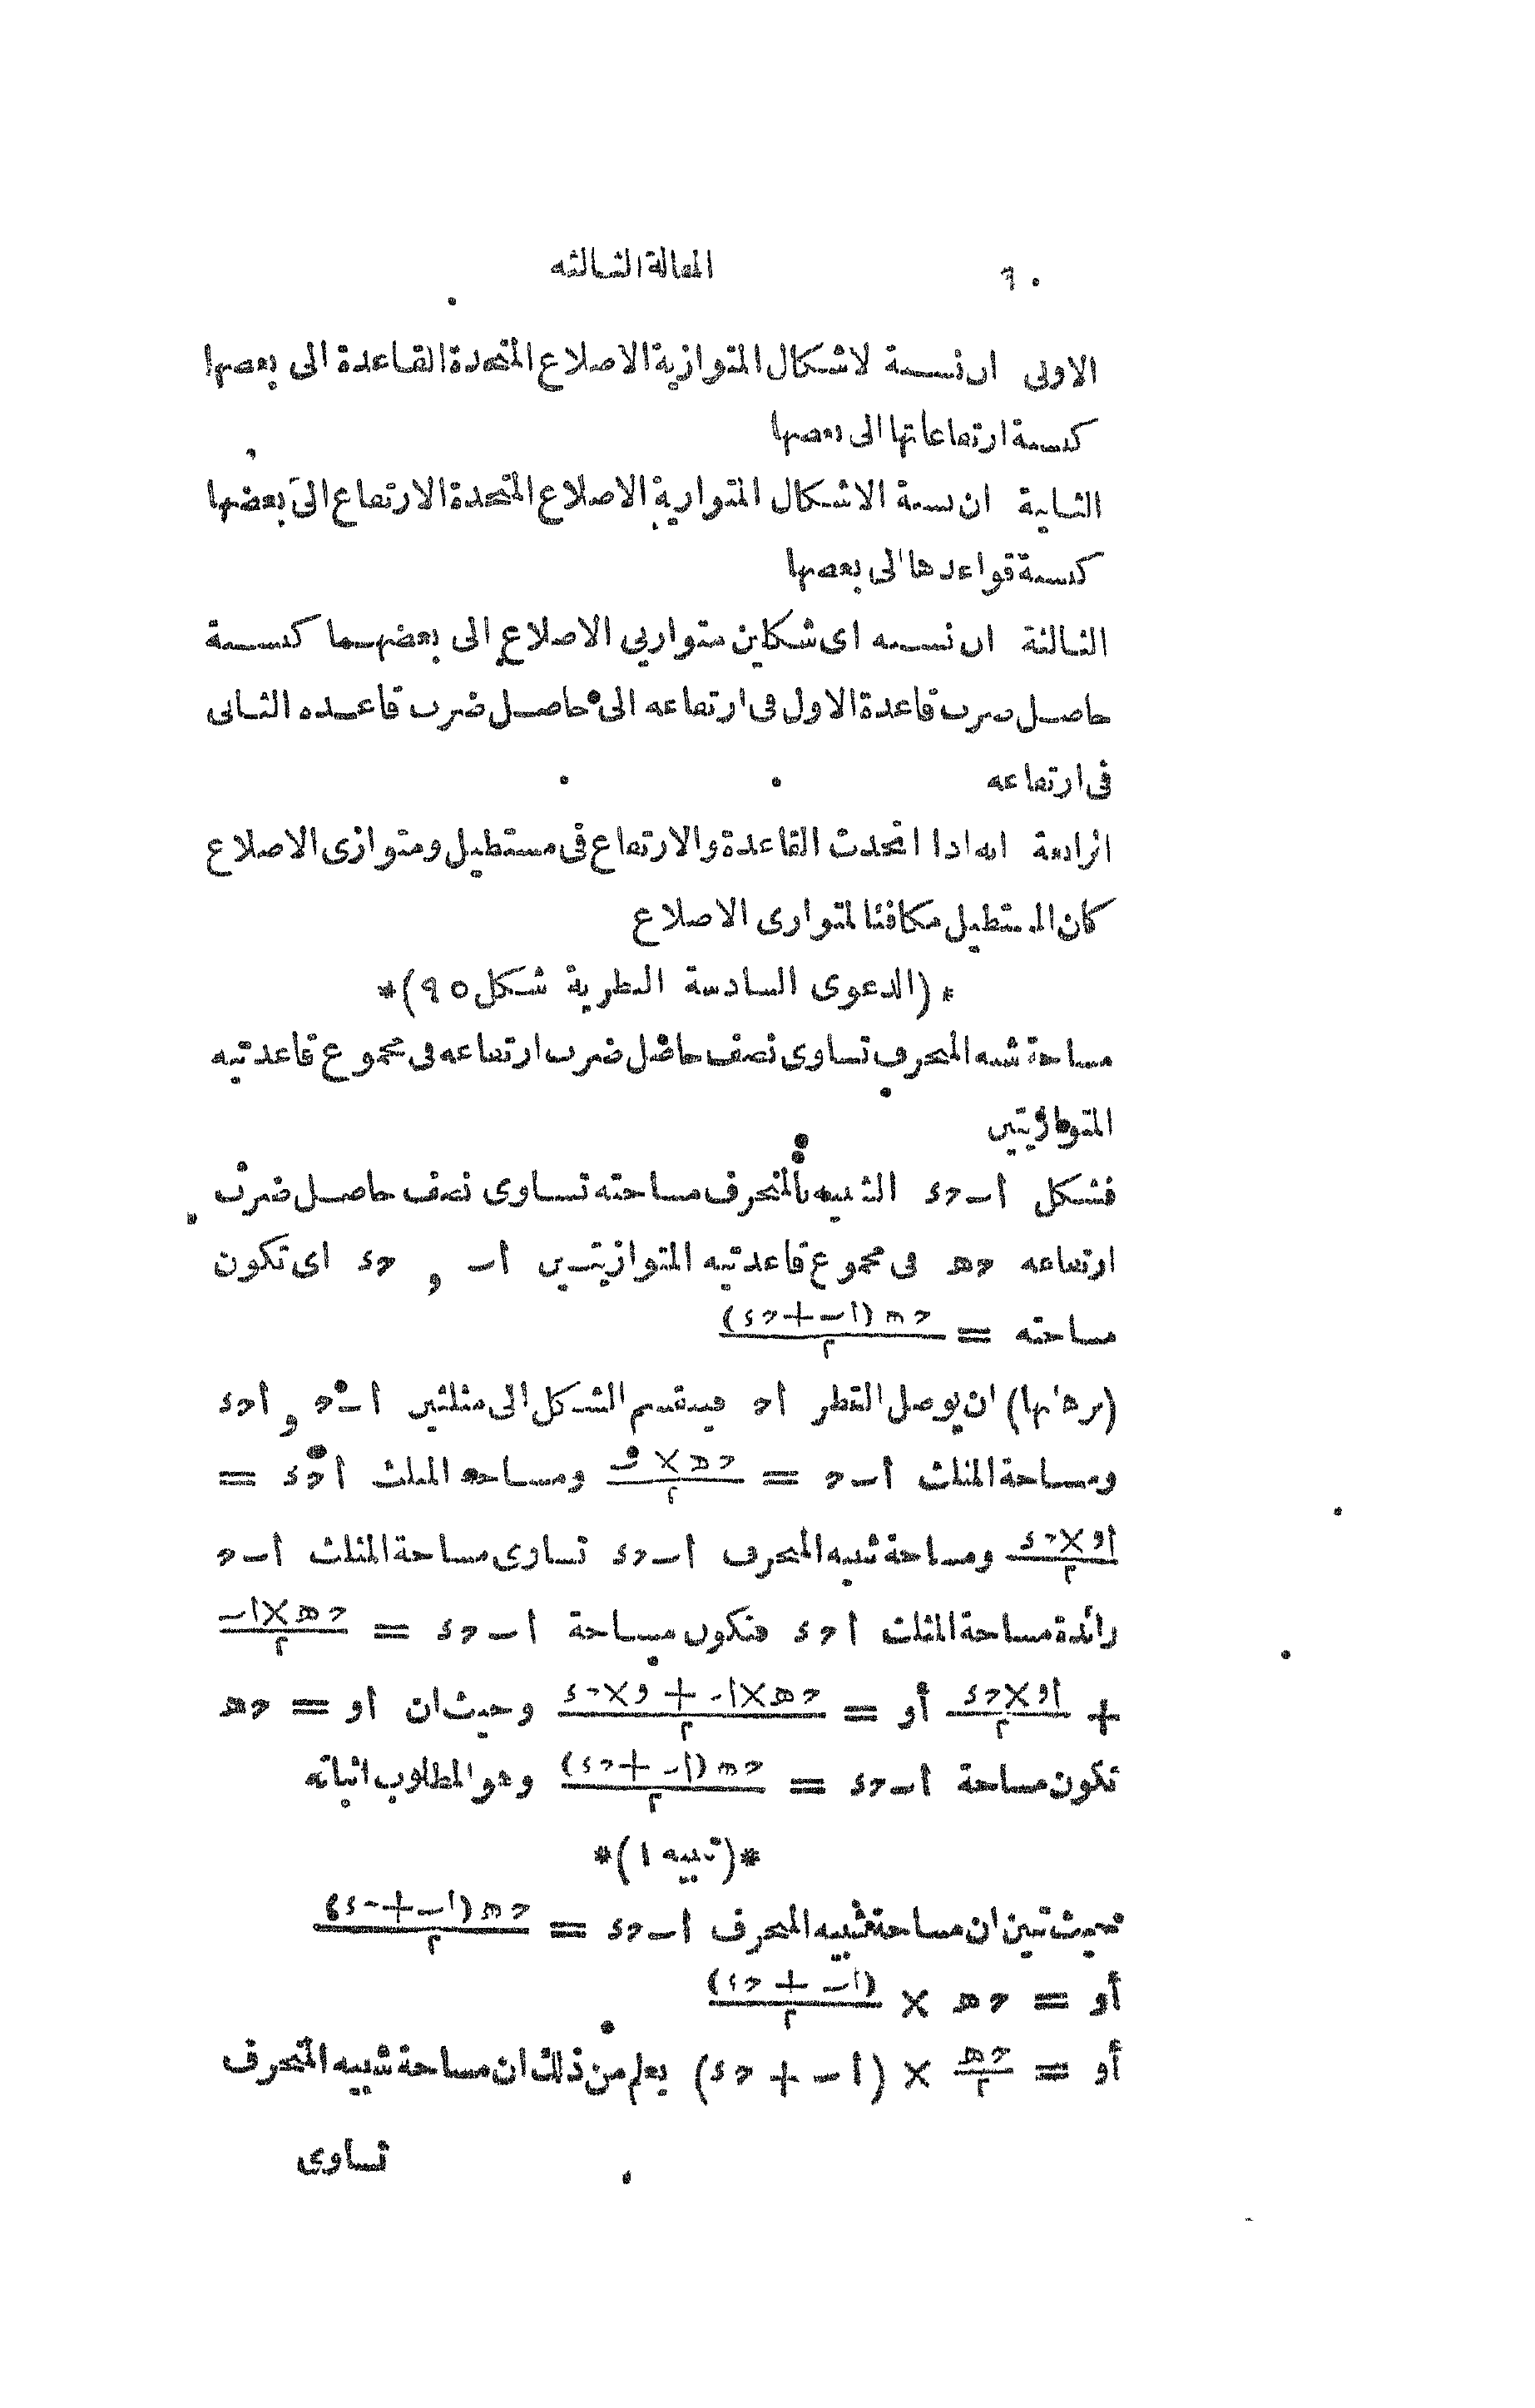 ٦٠ المقالة الثالثه
الاولى ان نسبة الاشكال المتوازية الاضلاع المتحدة القاعدة الى بعضها
كنسبة ارتفاعاتها الى بعضها
الثانية ان نسبة الاشكال المتوازية الاضلاع المتحدة الارتفاع الى بعضها
كنسبة قواعدها الى بعضها
الثالثة ان نسبه اى شكلين متوازيي الاضلاع الى بعضهما كنسبة
حاصل ضرب قاعدة الاول فى ارتفاعه الى حاصل ضرب قاعده الثانى
فى ارتفاعه
الرابعة انه اذا اتحدت القاعدة والارتفاع فى مستطيل ومتوازى الاضلاع
كان المستطيل مكافئا لمتوازى الاضلاع
*(الدعوى السادسة النظرية شكل ٩٥)*
مساحة شبه المنحرف تساوى نصف حاصل ضرب ارتفاعه فى مجموع قاعدتيه
المتوازيتين
فشكل أ ب ح د الشبيه بالمنحرف مساحته تساوى نصف حاصل ضرب
ارتفاعه ح ه فى مجموع قاعدتيه المتوازيتين أ ب و ح د اى تكون
مساحته = ح ه (أ ب + ح د) / ٢
(برهانها) ان يوصل القطر أ ح فينقسم الشكل الى مثلثين أ ب ح و أ ح د
ومساحة المثلث أ ب ح = ح ه × / ٢ ومساحة المثلث أ ح د =
أ و × ح د / ٢ ومساحة شبيه المنحرف أ ب ح د تساوى مساحة المثلث أ ب ح
زائدة مساحة المثلث أ ح د فتكون مساحة أ ب ح د = ح ه × أ ب / ٢
+ أ و × ح د / ٢ أو = ح ه × أ ب + و × ح د / ٢ وحيث ان أ و = ح ه
تكون مساحة أ ب ح د = ح ه (أ ب + ح د) / ٢ وهو المطلوب اثباته
*(تنبيه ١)*
فحيث تبين ان مساحة شبيه المنحرف أ ب ح د = ح ه (أ ب + ح د) / ٢
أو = ح ه × (أ ب + ح د) / ٢
أو = ح ه / ٢ × (أ ب + ح د) يعلم من ذلك ان مساحة شبيه المنحرف
تساوى